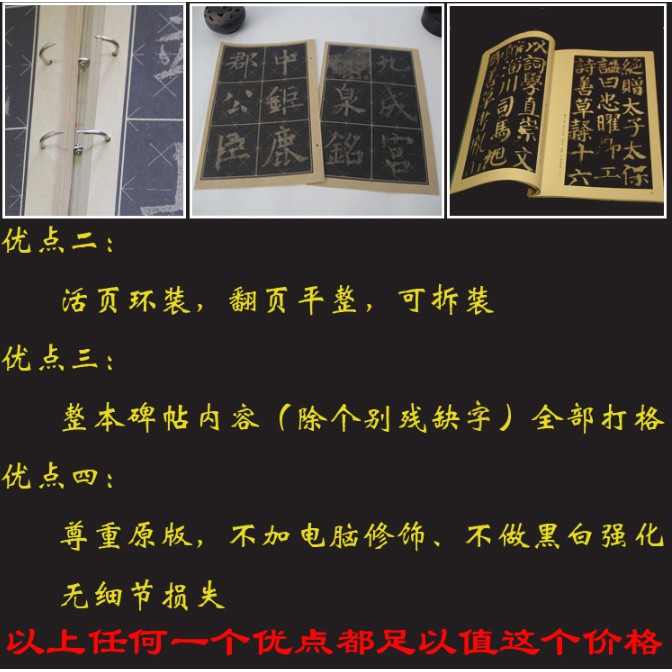 九成宮
泉銘
中鉅鹿
郡公臣
贈太子太保
謚曰忠曜卿工
詩善草隸十六
以詞學直崇文
淄川司馬
优点二：
活页环装，翻页平整，可拆装
优点三：
整本碑帖内容（除个别残缺字）全部打格
优点四：
尊重原版，不加电脑修饰、不做黑白强化
无细节损失
以上任何一个优点都足以值这个价格